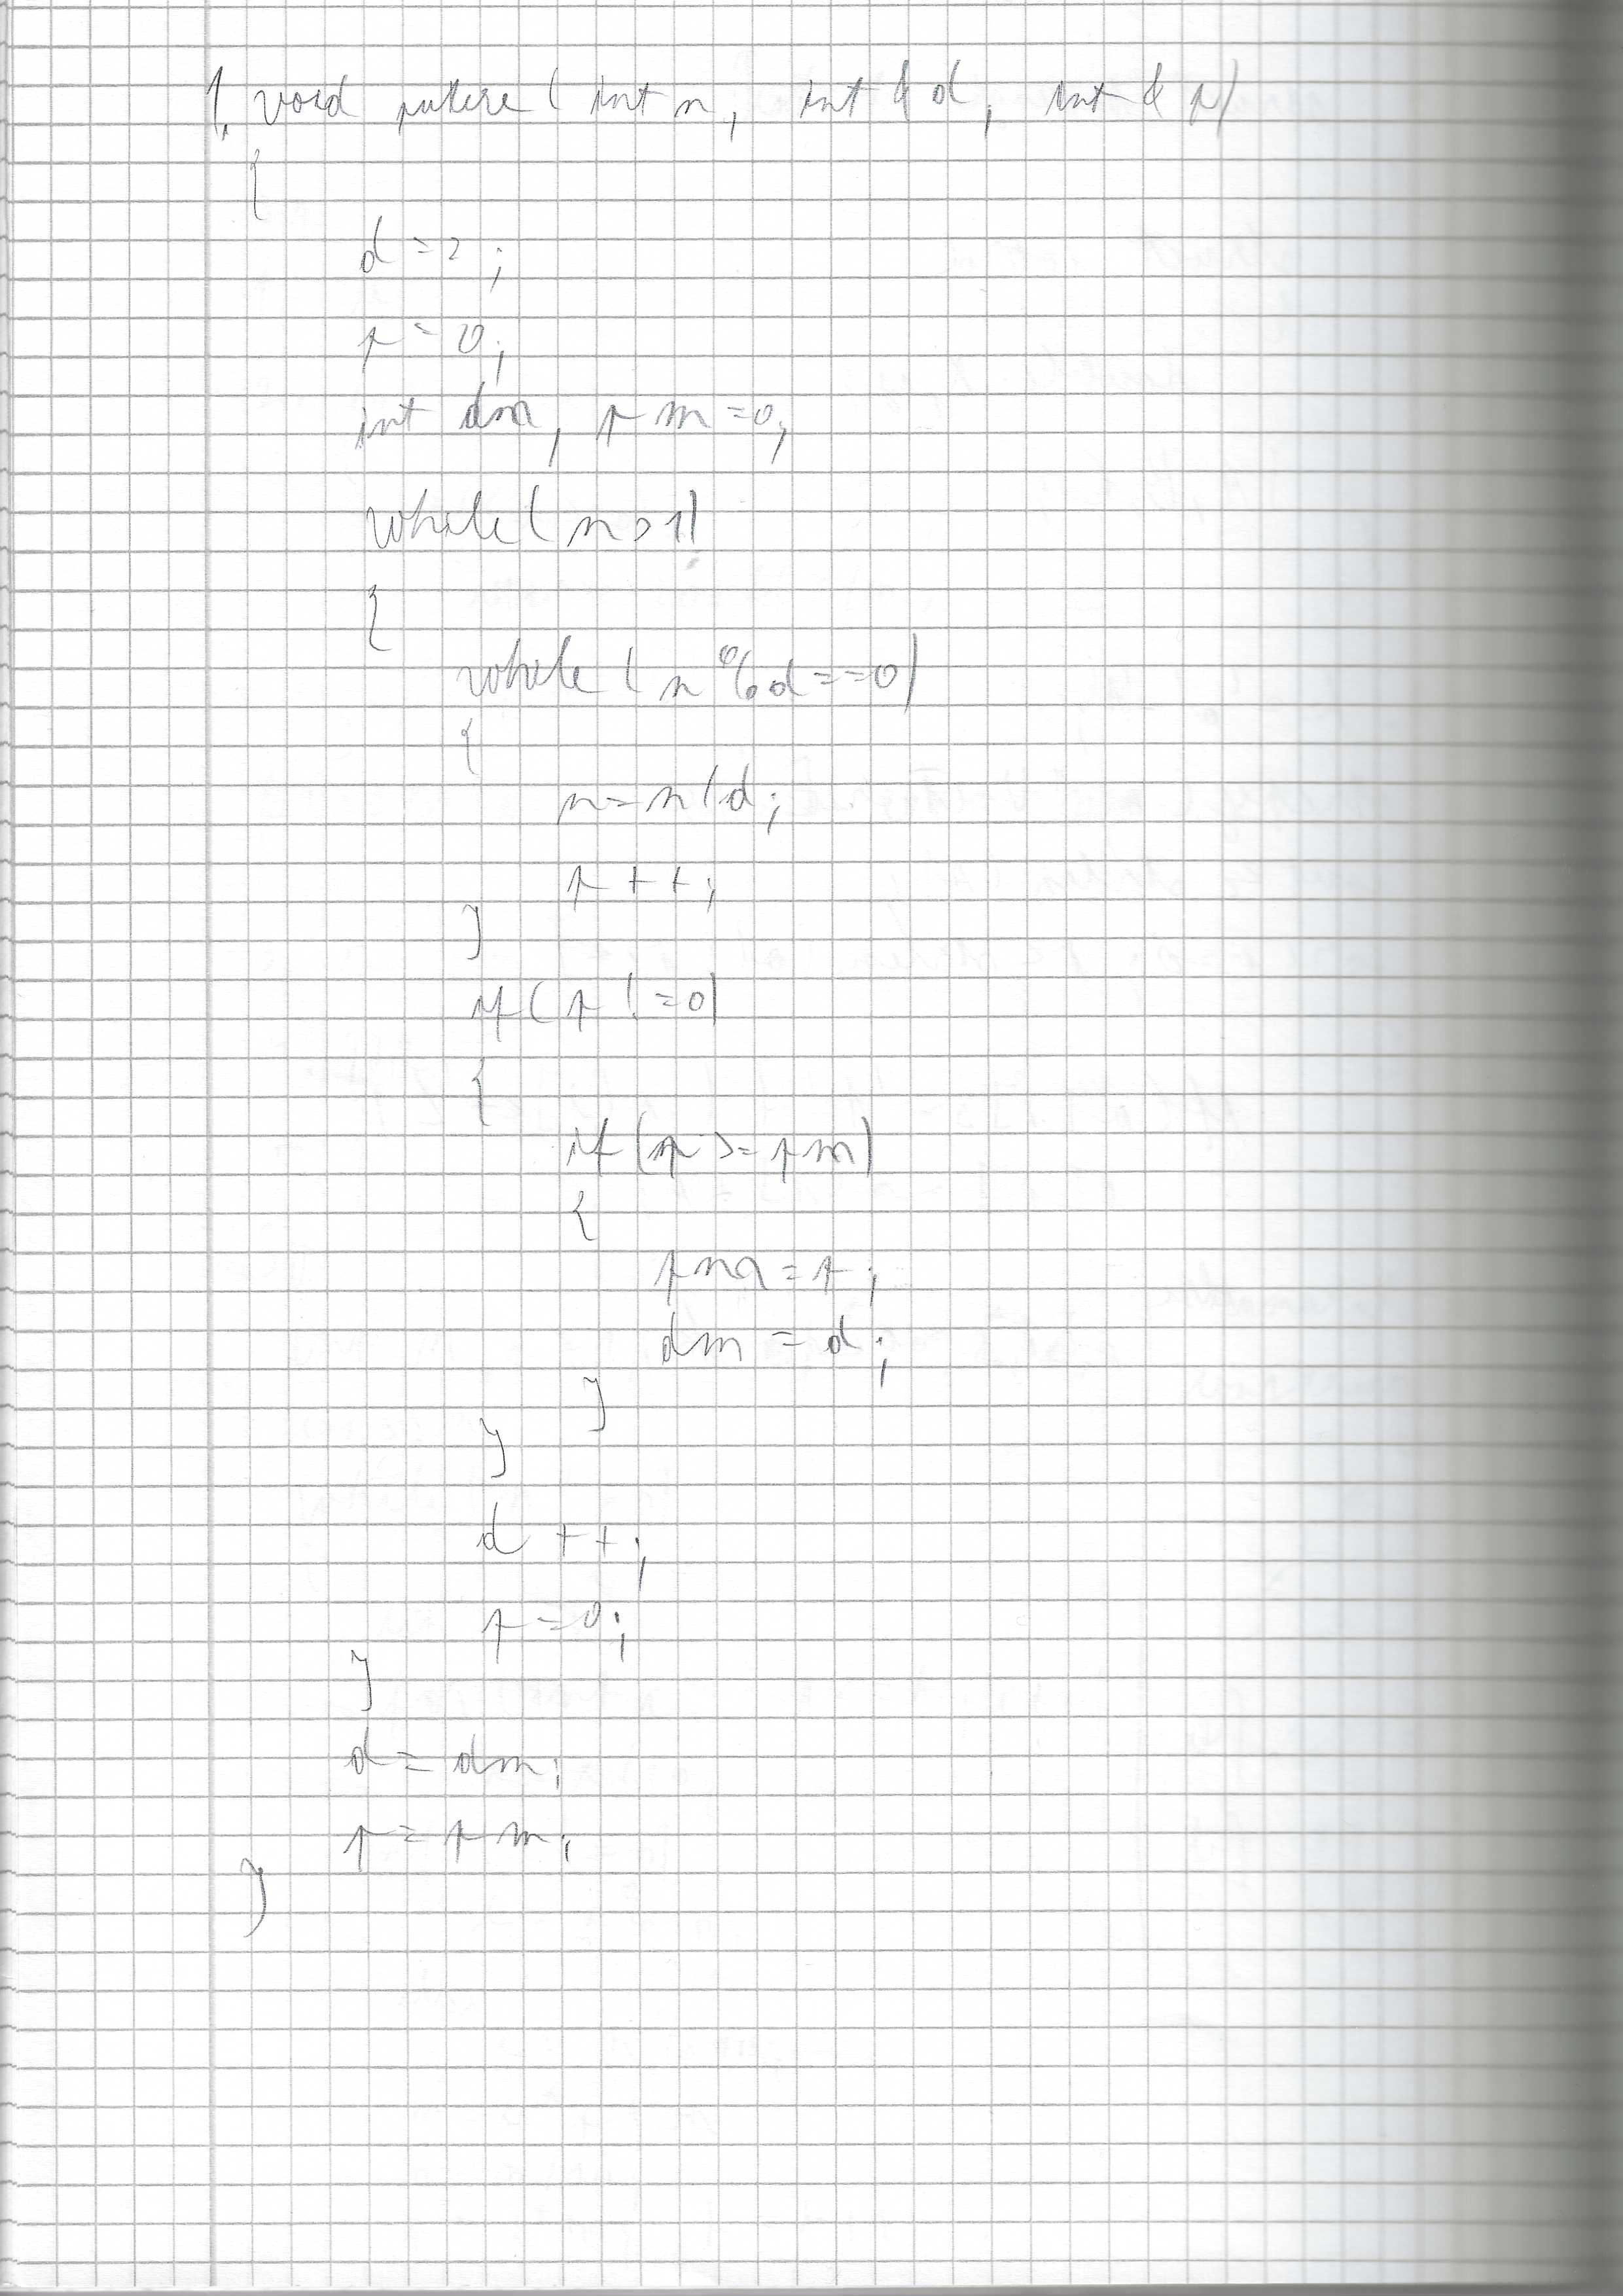 1. void putere ( int n, int & d, int & p)
{
d = 2 ;
p = 0;
int dm, pm = 0;
while ( n > 1)
{
while ( n % d == 0)
{
n = n / d ;
p + + ;
}
if ( p ! = 0)
{
if (p >= pm)
{
pm = p ;
dm = d ;
}
}
d + + ;
p = 0 ;
}
d = dm ;
p = pm ;
}